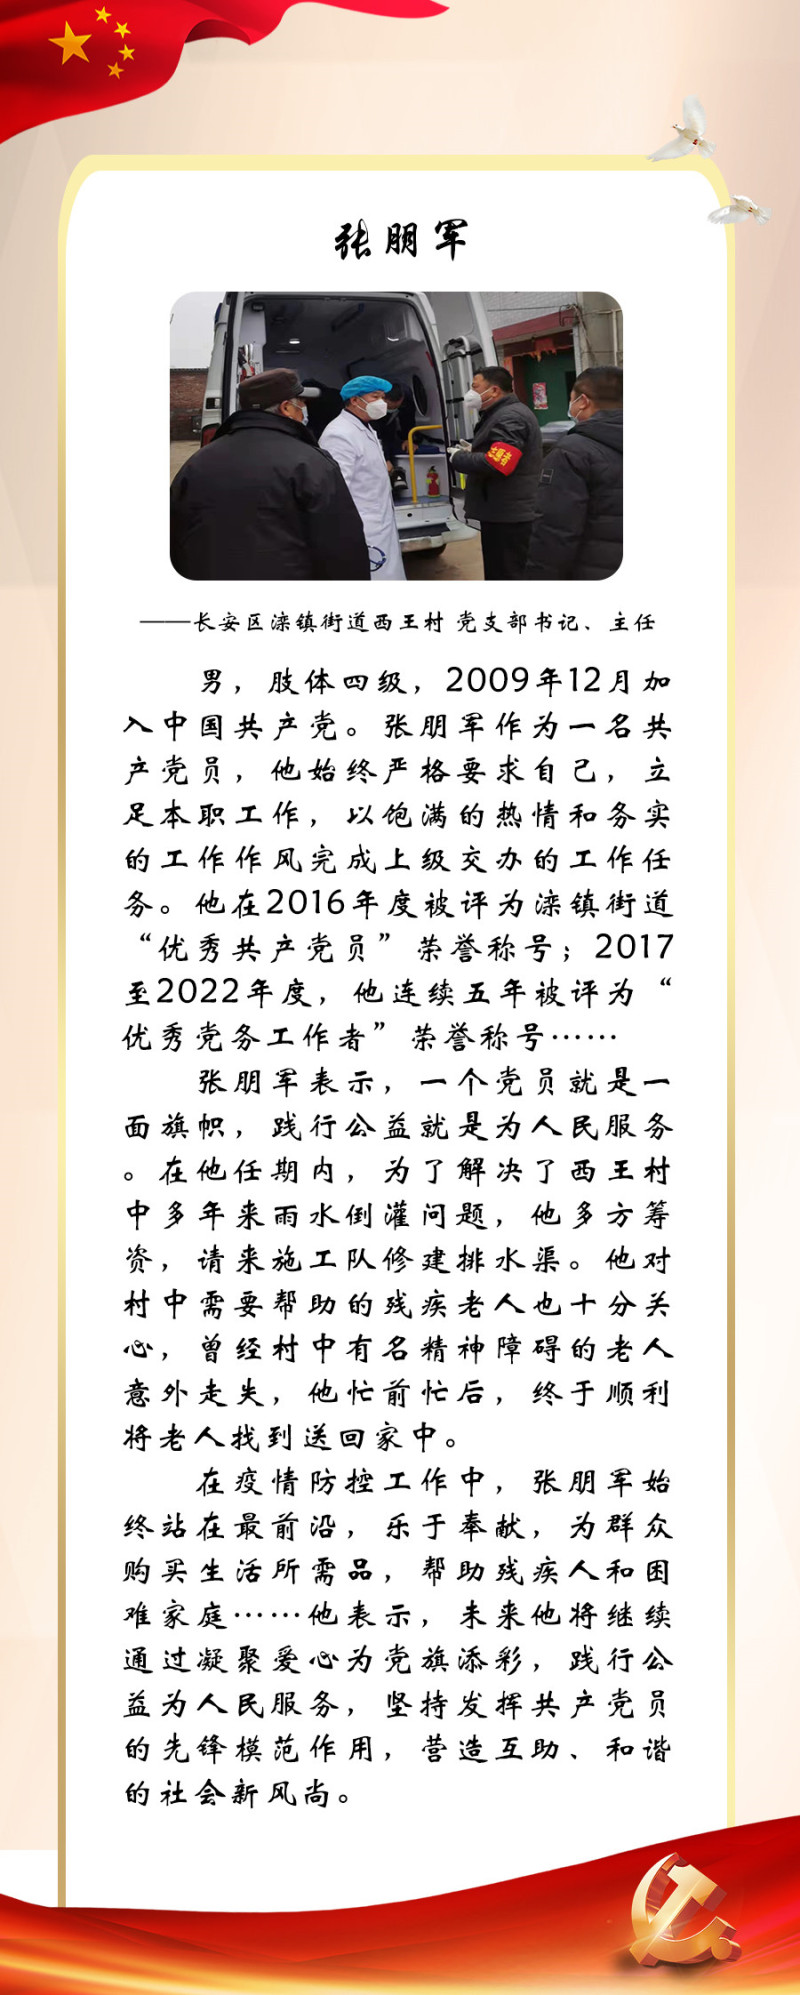 张朋军
——长安区滦镇街道西王村 党支部书记、主任
男，肢体四级，2009年12月加
入中国共产党。张朋军作为一名共
产党员，他始终严格要求自己，立
足本职工作，以饱满的热情和务实
的工作作风完成上级交办的工作任
务。他在2016年度被评为滦镇街道
“优秀共产党员”荣誉称号；2017
至2022年度，他连续五年被评为“
优秀党务工作者”荣誉称号……
张朋军表示，一个党员就是一
面旗帜，践行公益就是为人民服务
。在他任期内，为了解决了西王村
中多年来雨水倒灌问题，他多方筹
资，请来施工队修建排水渠。他对
村中需要帮助的残疾老人也十分关
心，曾经村中有名精神障碍的老人
意外走失，他忙前忙后，终于顺利
将老人找到送回家中。
在疫情防控工作中，张朋军始
终站在最前沿，乐于奉献，为群众
购买生活所需品，帮助残疾人和困
难家庭……他表示，未来他将继续
通过凝聚爱心为党旗添彩，践行公
益为人民服务，坚持发挥共产党员
的先锋模范作用，营造互助、和谐
的社会新风尚。